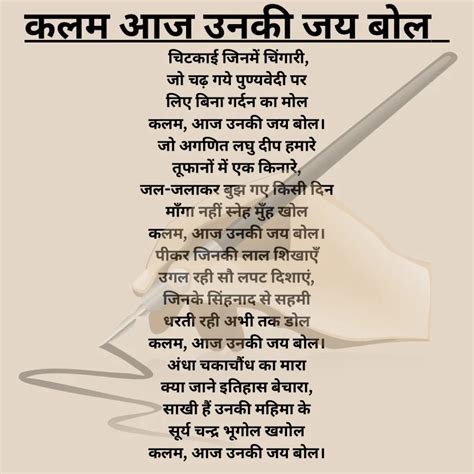 कलम आज उनकी जय बोल
चिटकाई जिनमें चिंगारी,
जो चढ़ गये पुण्यवेदी पर
लिए बिना गर्दन का मोल
कलम, आज उनकी जय बोल।
जो अगणित लघु दीप हमारे
तूफानों में एक किनारे,
जल-जलाकर बुझ गए किसी दिन
माँगा नहीं स्नेह मुँह खोल
कलम, आज उनकी जय बोल।
पीकर जिनकी लाल शिखाएँ
उगल रही सौ लपट दिशाएं,
जिनके सिंहनाद से सहमी
धरती रही अभी तक डोल
कलम, आज उनकी जय बोल।
अंधा चकाचौंध का मारा
क्या जाने इतिहास बेचारा,
साखी हैं उनकी महिमा के
सूर्य चन्द्र भूगोल खगोल
कलम, आज उनकी जय बोल।